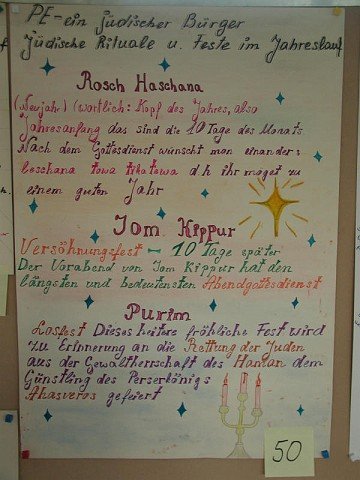 PE-ein jüdischer Bürger
Jüdische Rituale u. Feste im Jahreslauf
Rosch Haschana
(Neujahr) (wörtlich: Kopf des Jahres, also
Jahresanfang das sind die 10 Tage des Monats
Nach dem Gottesdienst wünscht man einander:
leschana towa tikatewa d.h ihr moget zu
einem guten Jahr
Jom Kippur
Versöhnungsfest - 10 Tage später
Der Vorabend von Jom Kippur hat den
längsten und bedeutensten Abendgottesdienst
Purim
Losfest Dieses heitere fröhliche Fest wird
zu Erinnerung an die Rettung der Juden
aus der Gewaltherrschaft des Haman dem
Günstling des Perserkönigs
Ahasveros gefeiert
50